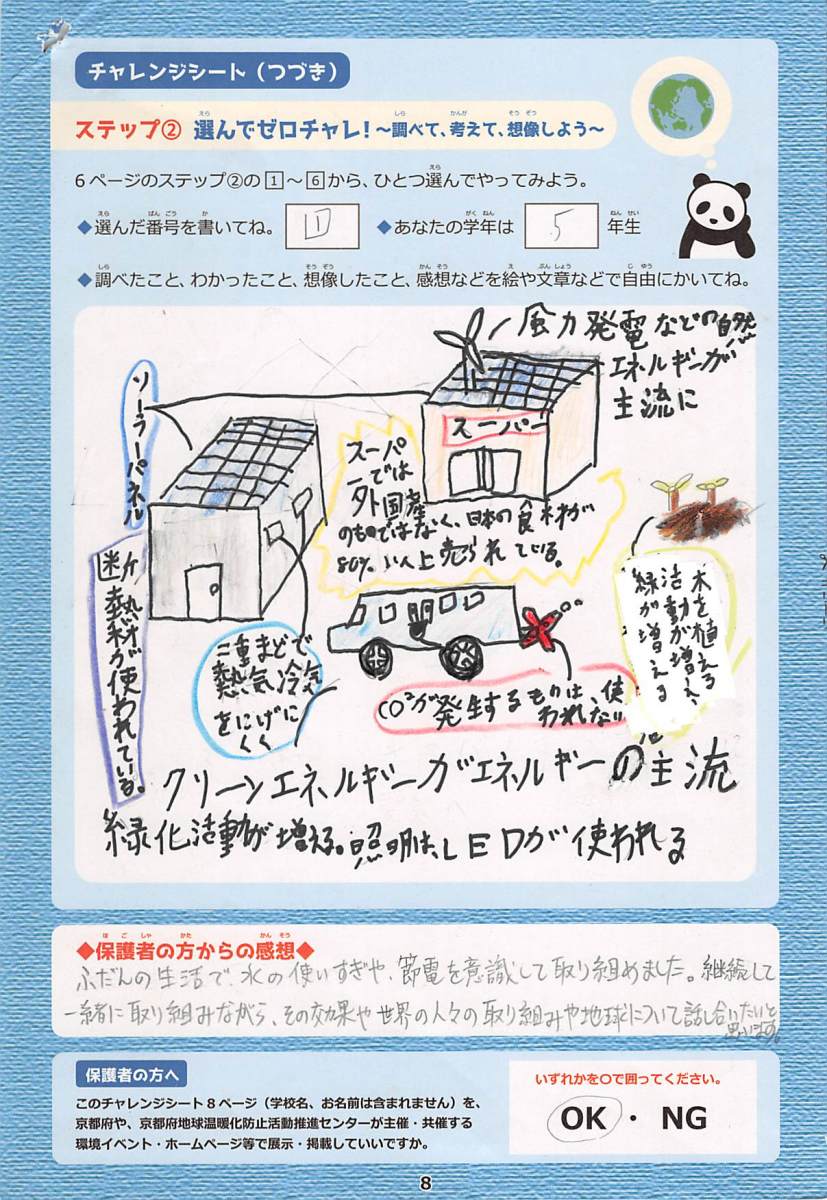 チャレンジシート（つづき）
ステップ② 選んでゼロチャレ！〜調べて、考えて、想像しよう〜
6ページのステップ②の1〜6から、ひとつ選んでやってみよう。
◆選んだ番号を書いてね。 1 ◆あなたの学年は 5 年生
◆調べたこと、わかったこと、想像したこと、感想などを絵や文章などで自由にかいてね。
風力発電などの自然
エネルギーが
主流に
ソーラーパネル
スーパー
スーパ
ーでは
外国産
のものではなく、日本の食材が
80%以上売られている。
断熱材が使われている。
二重まどで
熱気、冷気
をにげに
くく
CO²が発生するものは、使
われない
木を植える
活動が増え、
緑が増える
クリーンエネルギーがエネルギーの主流に
緑化活動が増える。照明は、LEDが使われる
◆保護者の方からの感想◆
ふだんの生活で、水の使いすぎや、節電を意識して取り組めました。継続して
一緒に取り組みながら、その効果や世界の人々の取り組みや地球について話し合いたいと
思います。
保護者の方へ
このチャレンジシート8ページ（学校名、お名前は含まれません）を、
京都府や、京都府地球温暖化防止活動推進センターが主催・共催する
環境イベント・ホームページ等で展示・掲載していいですか。
いずれかを〇で囲ってください。
OK ・ NG
8